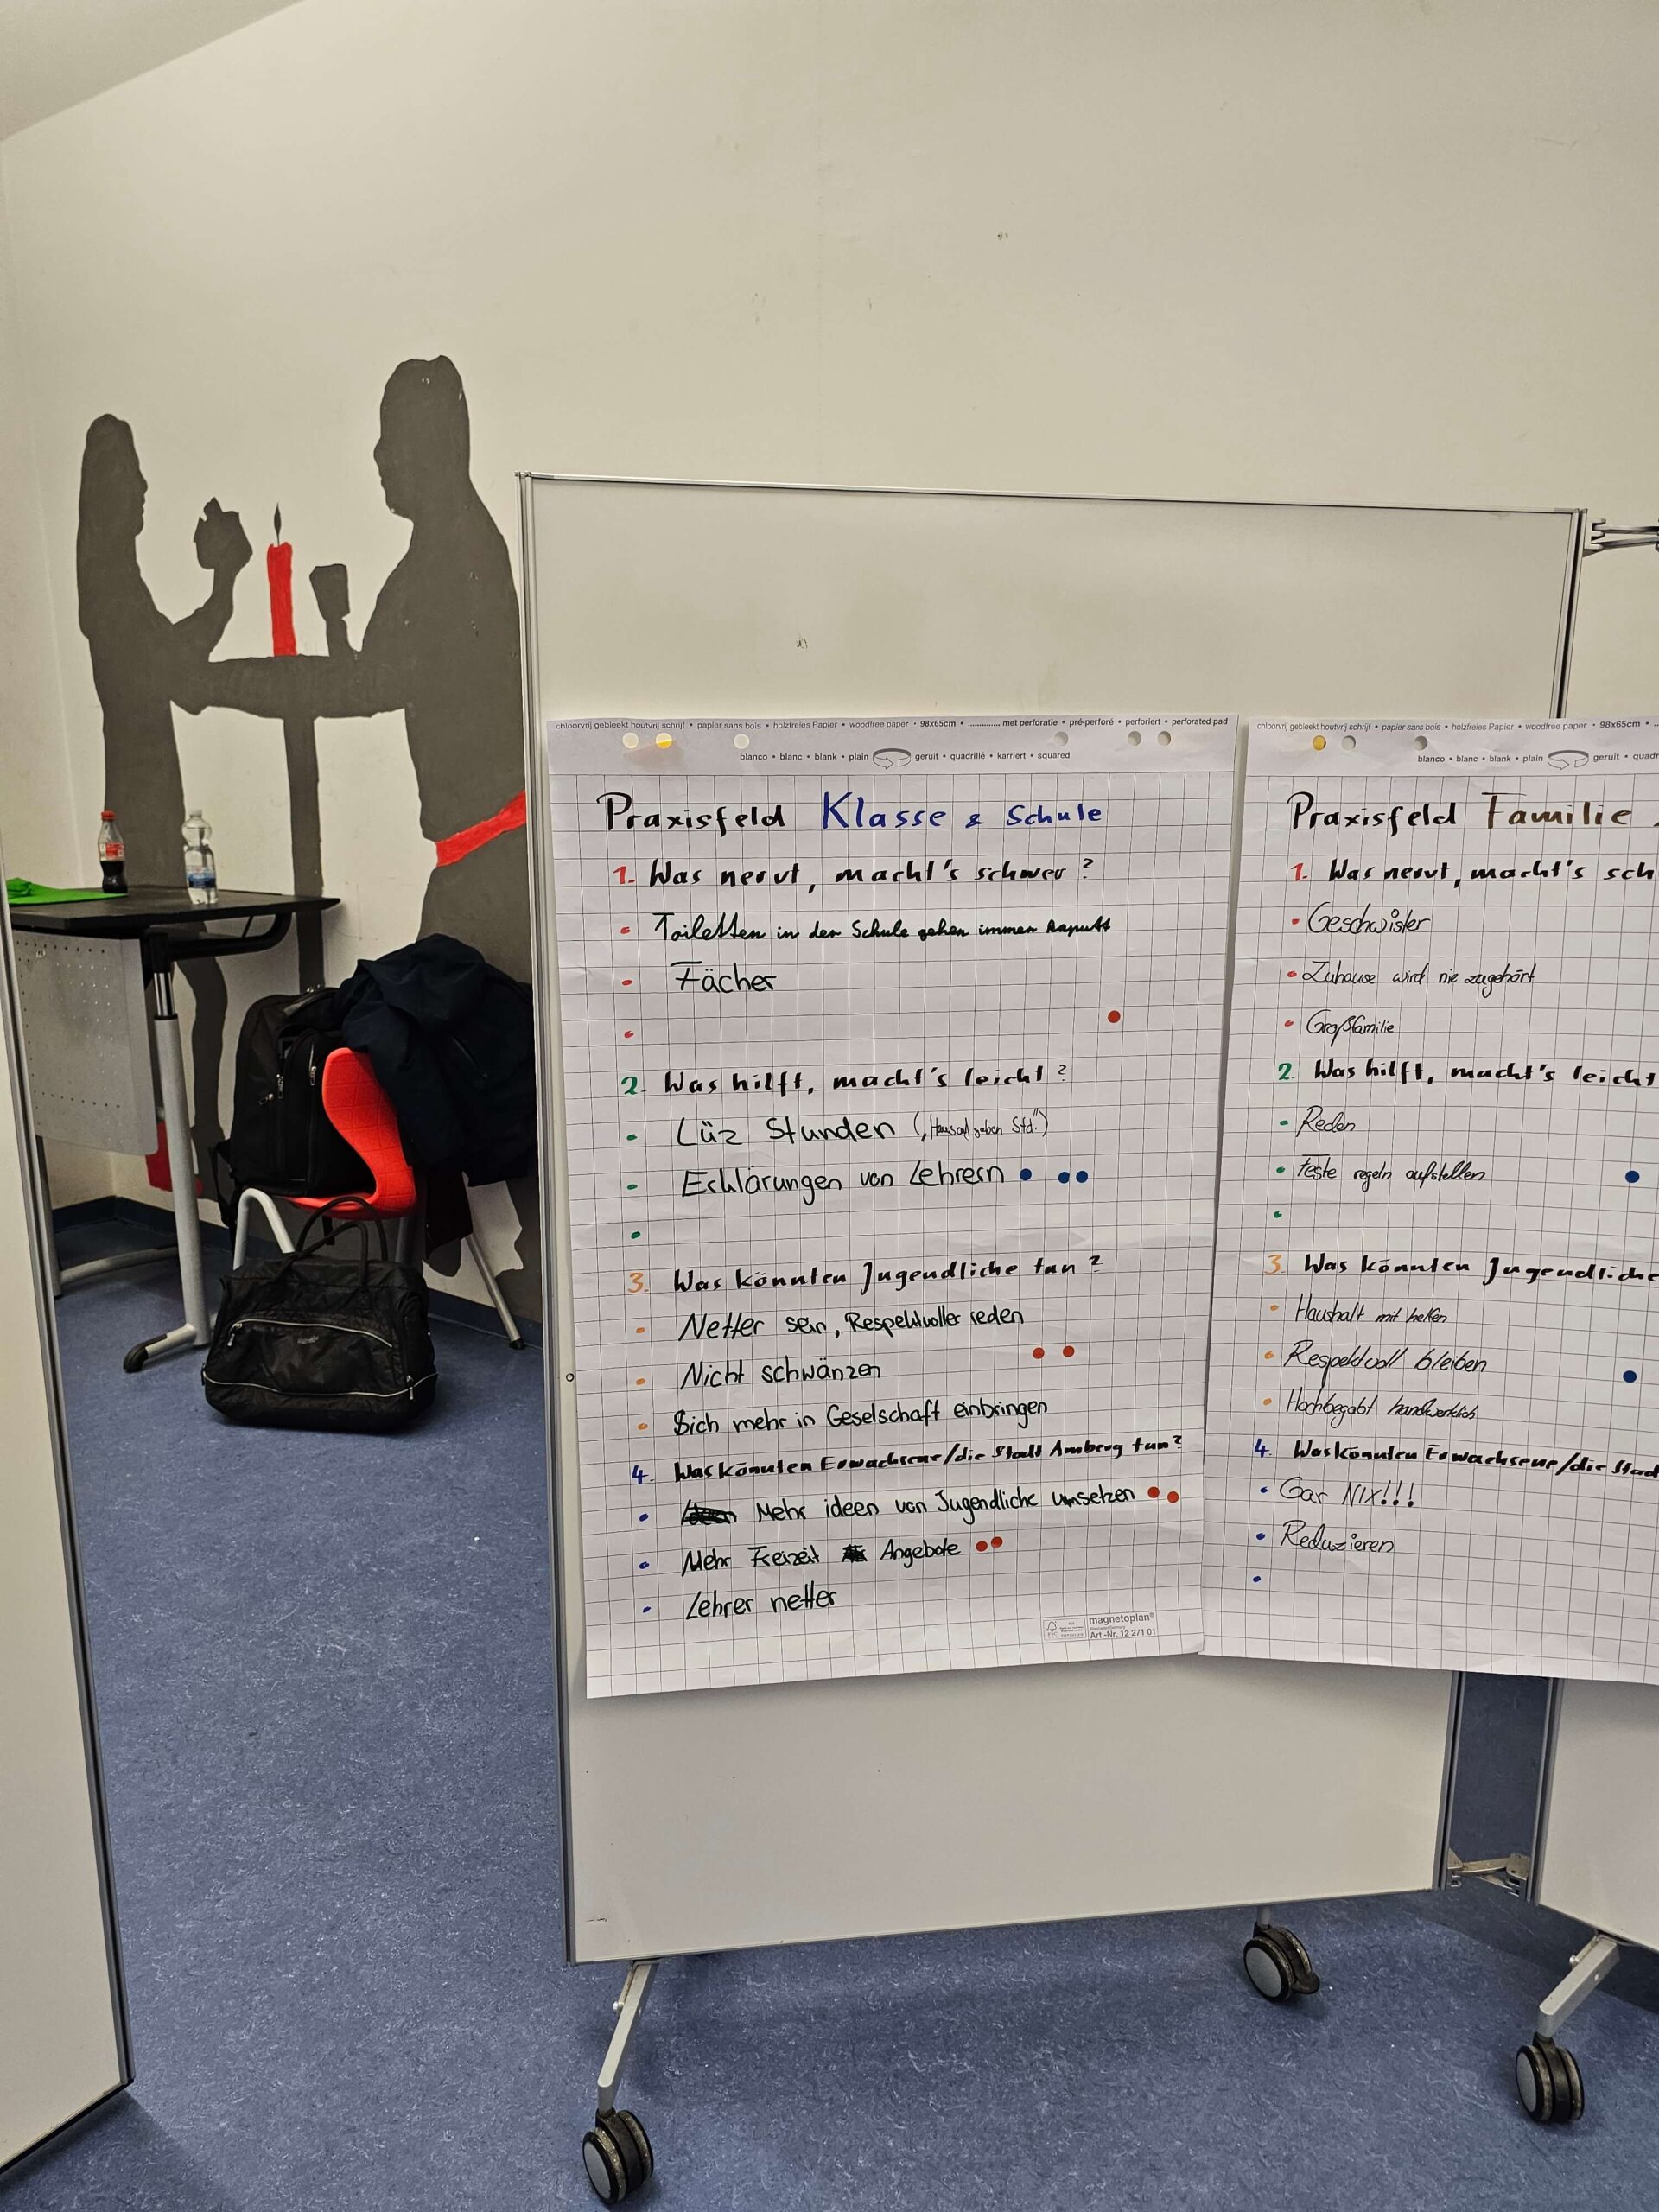 chloorvrij gebleekt houtvrij schrijf • papier sans bois • holzfreies Papier • woodfree paper • 98x65cm • .............. met perforatie • pré-perforé • perforiert • perforated pad
blanco • blanc • blank • plain geruit • quadrillé • karriert • squared
Praxisfeld Klasse & Schule
1. Was nervt, macht's schwer?
• Toiletten in der Schule gehen immer kaputt
• Fächer
•
2. Was hilft, macht's leicht?
• Lüz Stunden („Hausaufgaben Std.")
• Erklärungen von Lehrern
•
3. Was könnten Jugendliche tun?
• Netter sein, Respektvoller reden
• Nicht schwänzen
• Sich mehr in Geselschaft einbringen
4. Was könnten Erwachsene/die Stadt Amberg tun?
• Mehr ideen von Jugendliche umsetzen
• Mehr Freizeit Angebote
• Lehrer netter
magnetoplan®
Art.-Nr. 12 271 01
chloorvrij gebleekt houtvrij schrijf • papier sans bois • holzfreies Papier • woodfree paper • 98x65cm •
blanco • blanc • blank • plain geruit • quadr
Praxisfeld Familie
1. Was nervt, macht's sch
• Geschwister
• Zuhause wird nie zugehört
• Großfamilie
2. Was hilft, macht's leicht
• Reden
• feste regeln aufstellen
•
3. Was könnten Jugendliche
• Haushalt mit helfen
• Respektvoll bleiben
• Hochbegabt handwerklich
4. Was könnten Erwachsene/die Stad
• Gar NIX!!!
• Reduzieren
•